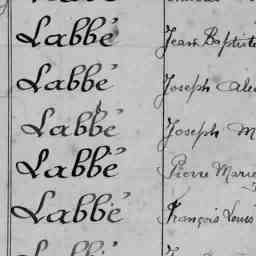 Labbé Jean Baptiste
Labbé Joseph Ale
Labbé Joseph M
Labbé Pierre Marie
Labbé François Louis
Labbé